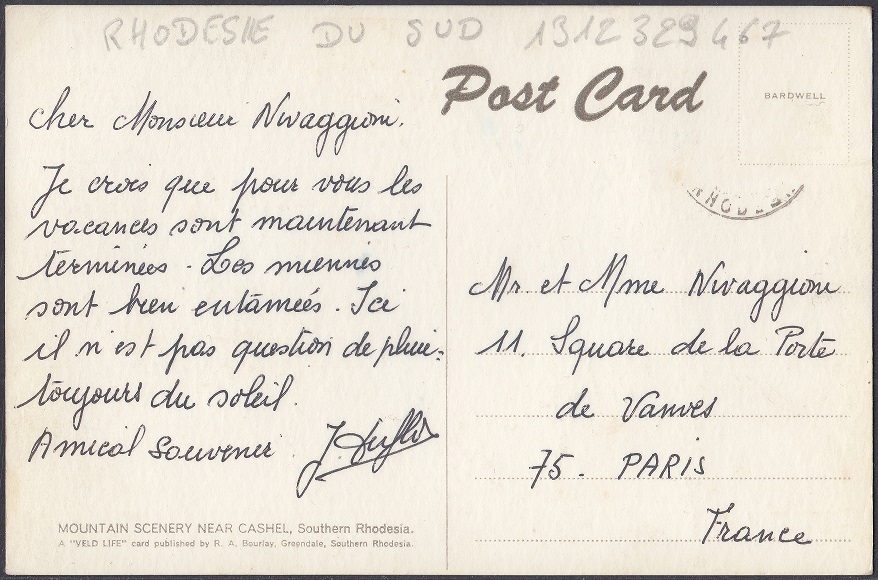 RHODESIE DU SUD 1312329467
Post Card
BARDWELL
Cher Monsieur Nivaggioni.
Je crois que pour vous les
vacances sont maintenant
terminées. Les miennes
sont bien entamées. Ici
il n'est pas question de pluie:
toujours du soleil.
Amical Souvenir J.
MOUNTAIN SCENERY NEAR CASHEL, Southern Rhodesia.
A "VELD LIFE" card published by R. A. Bourlay, Greendale, Southern Rhodesia.
RHODES
Mr et Mme Nivaggioni
11. Square de la Porte
de Vanves
75. PARIS
France